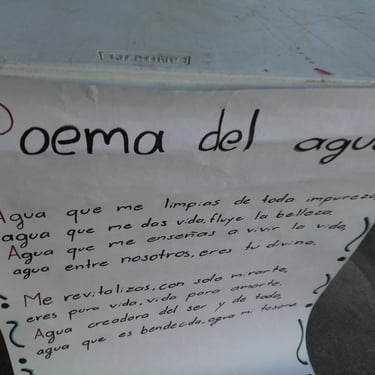 Poema del agua
Agua que me limpias de toda impureza
agua que me das vida, fluye la belleza
Agua que me enseñas a vivir la vida,
agua entre nosotros, eres tu divina.
Me revitalizas, con solo mirarte,
eres pura vida, vida para amarte,
Agua creadora del ser y de todo,
agua que es bendecida, agua mi tesoro